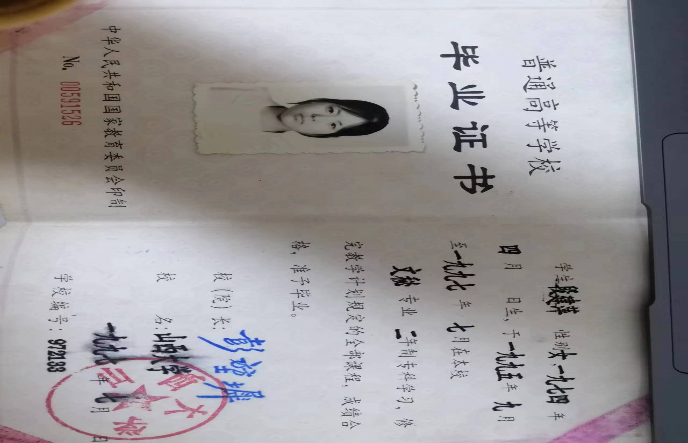 普通高等学校
毕业证书
中华人民共和国国家教育委员会印制
No. 00591526
学生 性别女,一九七四年
四月 日生,于一九九五年九月
至一九九七年 七月在本校
文秘 专业 二年制专科学习,修
完教学计划规定的全部课程,成绩合
格,准予毕业。
校(院)长:
校 名:山西大学
一九九七年七月 日
学校编号:972183